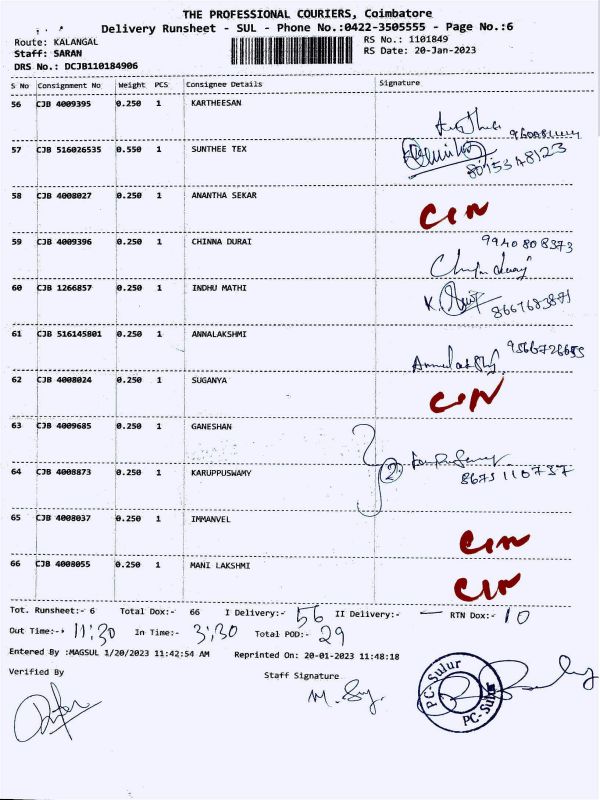 THE PROFESSIONAL COURIERS, Coimbatore
Delivery Runsheet - SUL - Phone No.:0422-3505555 - Page No.:6
Route: KALANGAL
RS No.: 1101849
Staff: SARAN
RS Date: 20-Jan-2023
DRS No.: DCJB110184906
S No Consignment No Weight PCS Consignee Details Signature
56 CJB 4009395 0.250 1 KARTHEESAN
57 CJB 516026535 0.550 1 SUNTHEE TEX
8015348123
58 CJB 4008027 0.250 1 ANANTHA SEKAR
CIN
59 CJB 4009396 0.250 1 CHINNA DURAI 9940808373
60 CJB 1266857 0.250 1 INDHU MATHI
8667683871
61 CJB 516145801 0.250 1 ANNALAKSHMI
9566726655
62 CJB 4008024 0.250 1 SUGANYA
CIN
63 CJB 4009685 0.250 1 GANESHAN
64 CJB 4008873 0.250 1 KARUPPUSWAMY
2
8675110737
65 CJB 4008037 0.250 1 IMMANVEL
CIN
66 CJB 4008055 0.250 1 MANI LAKSHMI
CIN
Tot. Runsheet:- 6 Total Dox:- 66 I Delivery:- 56 II Delivery:- — RTN Dox:- 10
Out Time:- 11:30 In Time:- 3:30 Total POD:- 29
Entered By :MAGSUL 1/20/2023 11:42:54 AM Reprinted On: 20-01-2023 11:48:18
Verified By Staff Signature
PC-Sulur
PC-Sulur